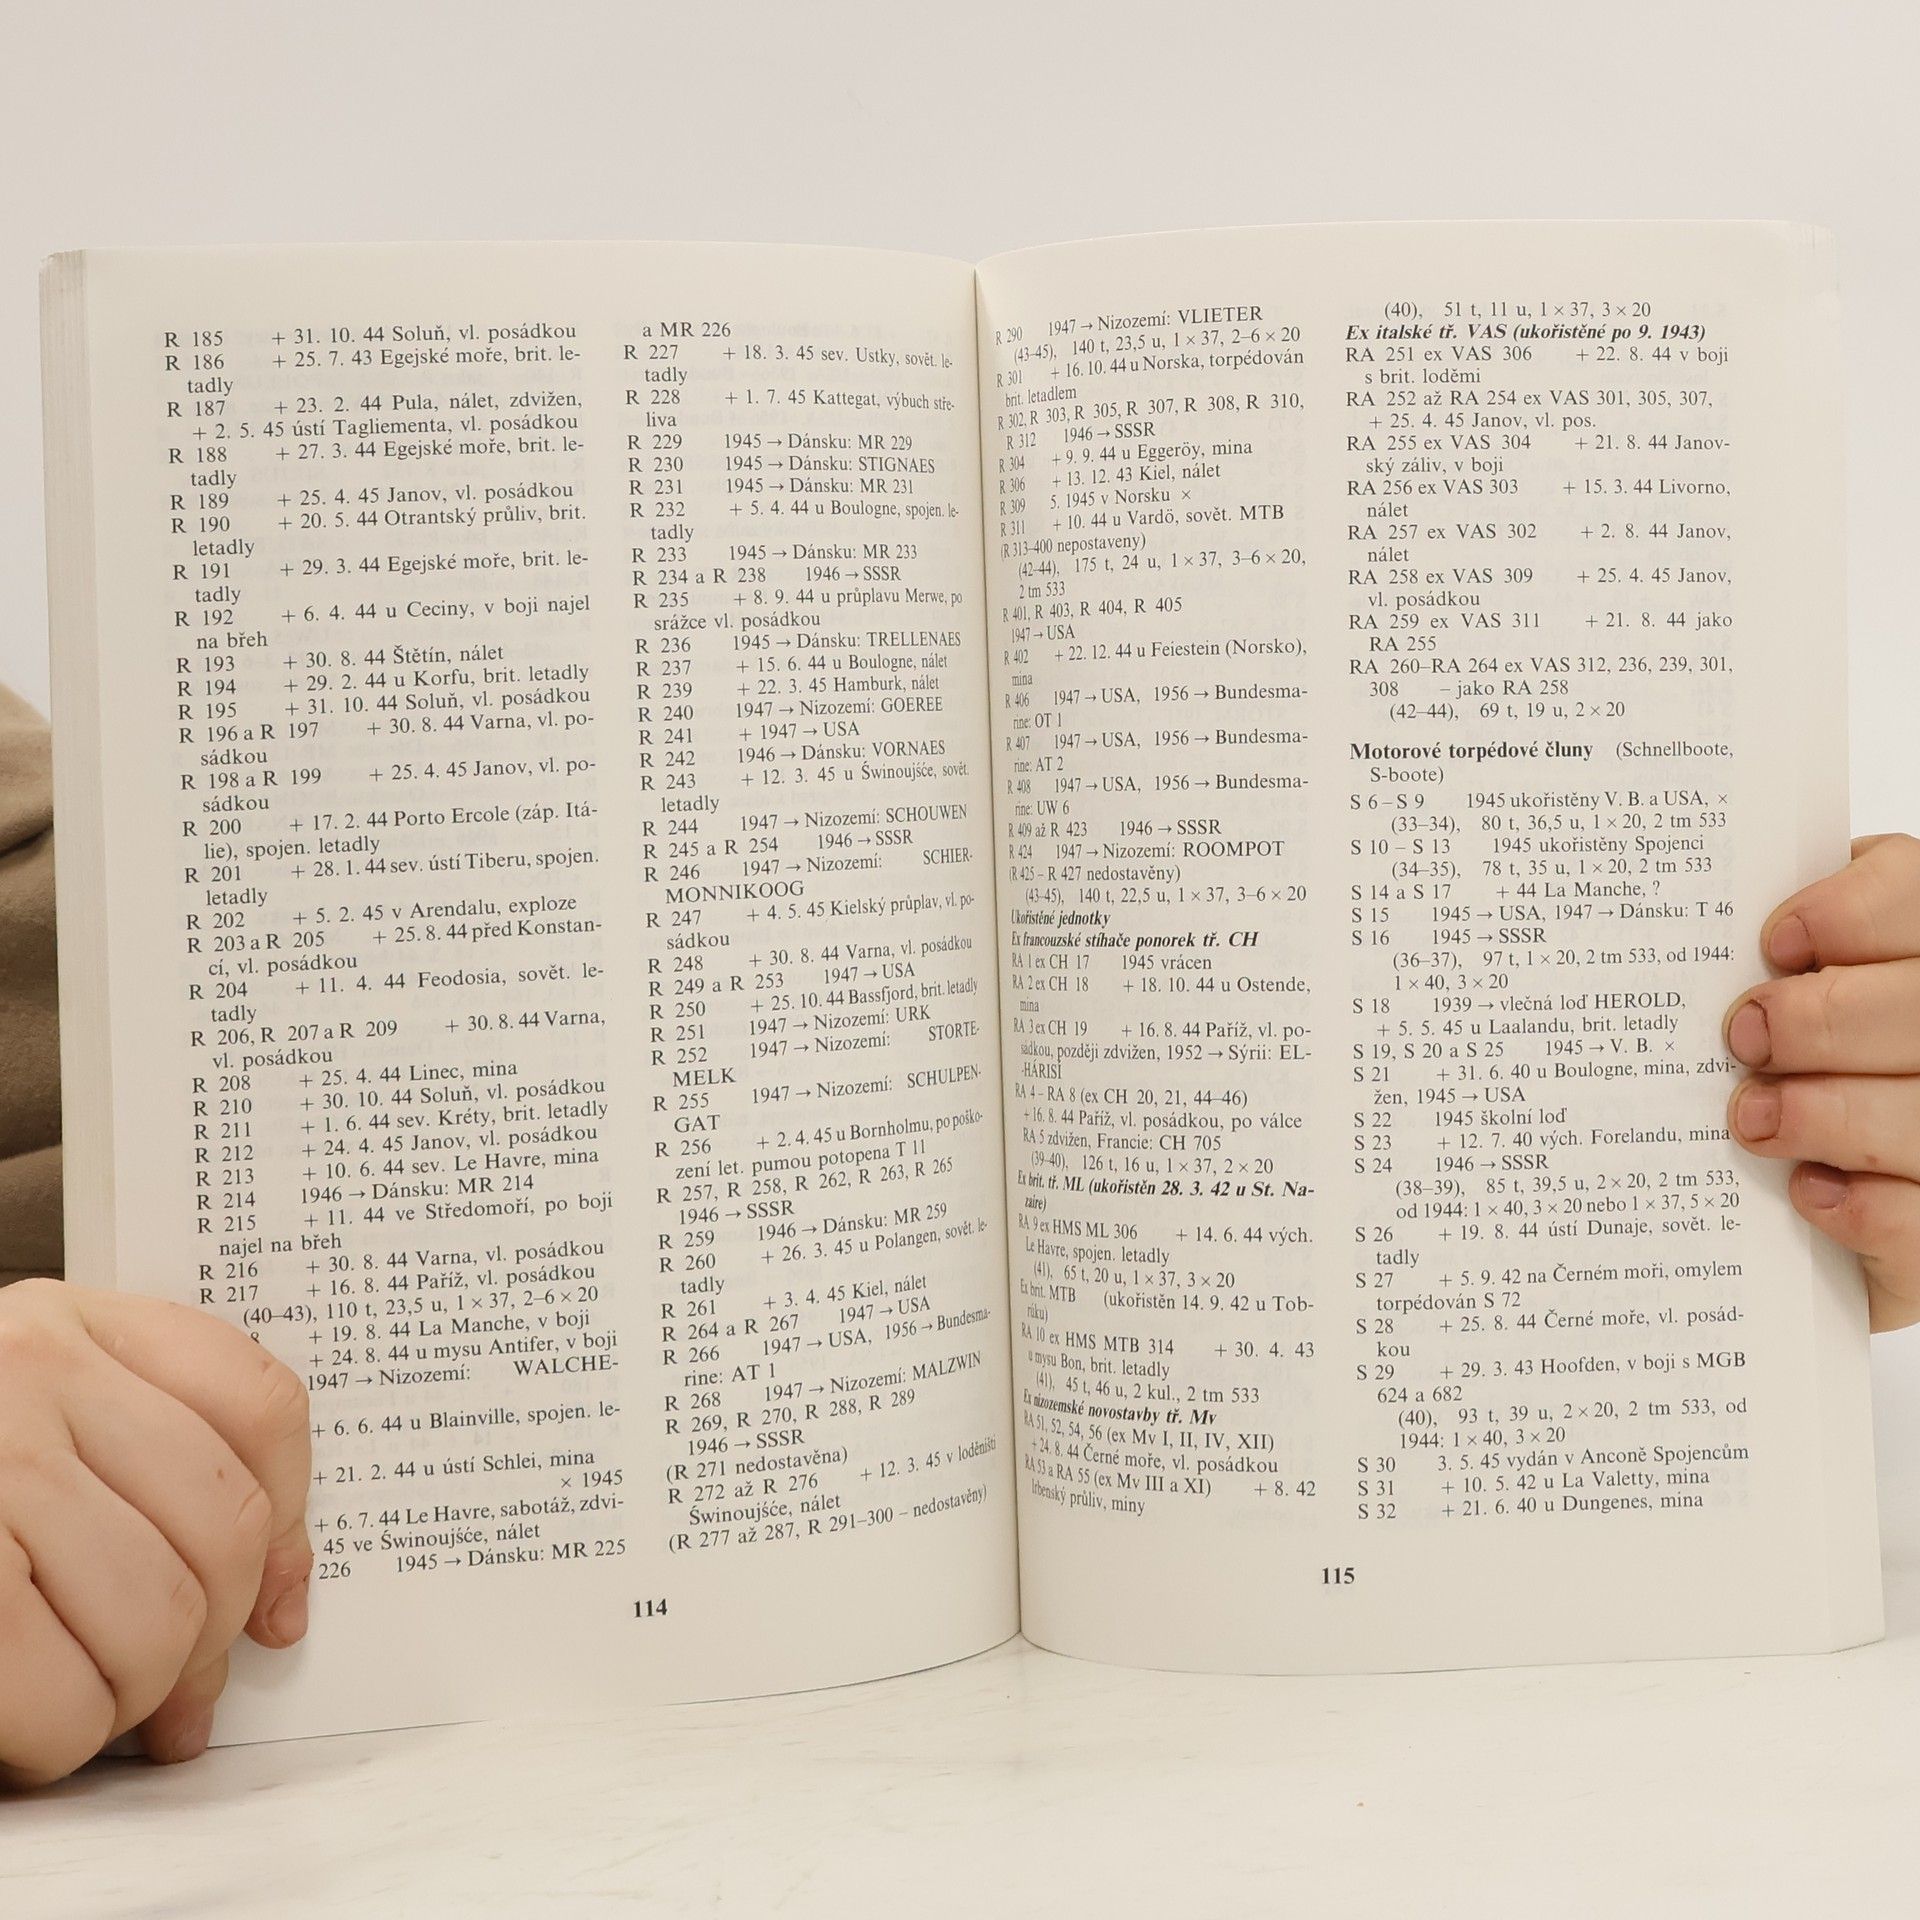 R 185 + 31. 10. 44 Soluň, vl. posádkou
R 186 + 25. 7. 43 Egejské moře, brit. le-
tadly
R 187 + 23. 2. 44 Pula, nálet, zdvižen,
+ 2. 5. 45 ústí Tagliementa, vl. posádkou
R 188 + 27. 3. 44 Egejské moře, brit. le-
tadly
R 189 + 25. 4. 45 Janov, vl. posádkou
R 190 + 20. 5. 44 Otrantský průliv, brit.
letadly
R 191 + 29. 3. 44 Egejské moře, brit. le-
tadly
R 192 + 6. 4. 44 u Ceciny, v boji najel
na břeh
R 193 + 30. 8. 44 Štětín, nálet
R 194 + 29. 2. 44 u Korfu, brit. letadly
R 195 + 31. 10. 44 Soluň, vl. posádkou
R 196 a R 197 + 30. 8. 44 Varna, vl. po-
sádkou
R 198 a R 199 + 25. 4. 45 Janov, vl. po-
sádkou
R 200 + 17. 2. 44 Porto Ercole (záp. Itá-
lie), spojen. letadly
R 201 + 28. 1. 44 sev. ústí Tiberu, spojen.
letadly
R 202 + 5. 2. 45 v Arendalu, exploze
R 203 a R 205 + 25. 8. 44 před Konstan-
cí, vl. posádkou
R 204 + 11. 4. 44 Feodosia, sovět. le-
tadly
R 206, R 207 a R 209 + 30. 8. 44 Varna,
vl. posádkou
R 208 + 25. 4. 44 Linec, mina
R 210 + 30. 10. 44 Soluň, vl. posádkou
R 211 + 1. 6. 44 sev. Kréty, brit. letadly
R 212 + 24. 4. 45 Janov, vl. posádkou
R 213 + 10. 6. 44 sev. Le Havre, mina
R 214 1946 → Dánsku: MR 214
R 215 + 11. 44 ve Středomoří, po boji
najel na břeh
R 216 + 30. 8. 44 Varna, vl. posádkou
R 217 + 16. 8. 44 Paříž, vl. posádkou
(40–43), 110 t, 23,5 u, 1 × 37, 2–6 × 20
8 + 19. 8. 44 La Manche, v boji
+ 24. 8. 44 u mysu Antifer, v boji
1947 → Nizozemí: WALCHE-
+ 6. 6. 44 u Blainville, spojen. le-
+ 21. 2. 44 u ústí Schlei, mina
× 1945
+ 6. 7. 44 Le Havre, sabotáž, zdvi-
45 ve Świnoujśće, nálet
226 1945 → Dánsku: MR 225
a MR 226
R 227 + 18. 3. 45 sev. Ustky, sovět. le-
tadly
R 228 + 1. 7. 45 Kattegat, výbuch stře-
liva
R 229 1945 → Dánsku: MR 229
R 230 1945 → Dánsku: STIGNAES
R 231 1945 → Dánsku: MR 231
R 232 + 5. 4. 44 u Boulogne, spojen. le-
tadly
R 233 1945 → Dánsku: MR 233
R 234 a R 238 1946 → SSSR
R 235 + 8. 9. 44 u průplavu Merwe, po
srážce vl. posádkou
R 236 1945 → Dánsku: TRELLENAES
R 237 + 15. 6. 44 u Boulogne, nálet
R 239 + 22. 3. 45 Hamburk, nálet
R 240 1947 → Nizozemí: GOEREE
R 241 + 1947 → USA
R 242 1946 → Dánsku: VORNAES
R 243 + 12. 3. 45 u Świnoujśće, sovět.
letadly
R 244 1947 → Nizozemí: SCHOUWEN
R 245 a R 254 1946 → SSSR
R 246 1947 → Nizozemí: SCHIER-
MONNIKOOG
R 247 + 4. 5. 45 Kielský průplav, vl. po-
sádkou
R 248 + 30. 8. 44 Varna, vl. posádkou
R 249 a R 253 1947 → USA
R 250 + 25. 10. 44 Bassfjord, brit. letadly
R 251 1947 → Nizozemí: URK
R 252 1947 → Nizozemí: STORTE-
MELK
R 255 1947 → Nizozemí: SCHULPEN-
GAT
R 256 + 2. 4. 45 u Bornholmu, po poško-
zení let. pumou potopena T 11
R 257, R 258, R 262, R 263, R 265
1946 → SSSR
R 259 1946 → Dánsku: MR 259
R 260 + 26. 3. 45 u Polangen, sovět. le-
tadly
R 261 + 3. 4. 45 Kiel, nálet
R 264 a R 267 1947 → USA
R 266 1947 → USA, 1956 → Bundesma-
rine: AT 1
R 268 1947 → Nizozemí: MALZWIN
R 269, R 270, R 288, R 289
1946 → SSSR
(R 271 nedostavěna)
R 272 až R 276 + 12. 3. 45 v loděništi
Świnoujśće, nálet
(R 277 až 287, R 291–300 – nedostavěny)
114
R 290 1947 → Nizozemí: VLIETER
(43–45), 140 t, 23,5 u, 1 × 37, 2–6 × 20
R 301 + 16. 10. 44 u Norska, torpédován
brit. letadlem
R 302, R 303, R 305, R 307, R 308, R 310,
R 312 1946 → SSSR
R 304 + 9. 9. 44 u Eggeröy, mina
R 306 + 13. 12. 43 Kiel, nálet
R 309 5. 1945 v Norsku ×
R 311 + 10. 44 u Vardö, sovět. MTB
(R 313–400 nepostaveny)
(42–44), 175 t, 24 u, 1 × 37, 3–6 × 20,
2 tm 533
R 401, R 403, R 404, R 405
1947 → USA
R 402 + 22. 12. 44 u Feiestein (Norsko),
mina
R 406 1947 → USA, 1956 → Bundesma-
rine: OT 1
R 407 1947 → USA, 1956 → Bundesma-
rine: AT 2
R 408 1947 → USA, 1956 → Bundesma-
rine: UW 6
R 409 až R 423 1946 → SSSR
R 424 1947 → Nizozemí: ROOMPOT
(R 425 – R 427 nedostavěny)
(43–45), 140 t, 22,5 u, 1 × 37, 3–6 × 20
Ukořistěné jednotky
Ex francouzské stíhače ponorek tř. CH
RA 1 ex CH 17 1945 vrácen
RA 2 ex CH 18 + 18. 10. 44 u Ostende,
mina
RA 3 ex CH 19 + 16. 8. 44 Paříž, vl. po-
sádkou, později zdvižen, 1952 → Sýrii: EL-
-HÁRISI
RA 4 – RA 8 (ex CH 20, 21, 44–46)
+ 16. 8. 44 Paříž, vl. posádkou, po válce
RA 5 zdvižen, Francie: CH 705
(39–40), 126 t, 16 u, 1 × 37, 2 × 20
Ex brit. tř. ML (ukořistěn 28. 3. 42 u St. Na-
zaire)
RA 9 ex HMS ML 306 + 14. 6. 44 vých.
Le Havre, spojen. letadly
(41), 65 t, 20 u, 1 × 37, 3 × 20
Ex brit. MTB (ukořistěn 14. 9. 42 u Tob-
rúku)
RA 10 ex HMS MTB 314 + 30. 4. 43
u mysu Bon, brit. letadly
(41), 45 t, 46 u, 2 kul., 2 tm 533
Ex nizozemské novostavby tř. Mv
RA 51, 52, 54, 56 (ex Mv I, II, IV, XII)
+ 24. 8. 44 Černé moře, vl. posádkou
RA 53 a RA 55 (ex Mv III a XI) + 8. 42
Irbenský průliv, miny
(40), 51 t, 11 u, 1 × 37, 3 × 20
Ex italské tř. VAS (ukořistěné po 9. 1943)
RA 251 ex VAS 306 + 22. 8. 44 v boji
s brit. loděmi
RA 252 až RA 254 ex VAS 301, 305, 307,
+ 25. 4. 45 Janov, vl. pos.
RA 255 ex VAS 304 + 21. 8. 44 Janov-
ský záliv, v boji
RA 256 ex VAS 303 + 15. 3. 44 Livorno,
nálet
RA 257 ex VAS 302 + 2. 8. 44 Janov,
nálet
RA 258 ex VAS 309 + 25. 4. 45 Janov,
vl. posádkou
RA 259 ex VAS 311 + 21. 8. 44 jako
RA 255
RA 260–RA 264 ex VAS 312, 236, 239, 301,
308 – jako RA 258
(42–44), 69 t, 19 u, 2 × 20
Motorové torpédové čluny (Schnellboote,
S-boote)
S 6 – S 9 1945 ukořistěny V. B. a USA, ×
(33–34), 80 t, 36,5 u, 1 × 20, 2 tm 533
S 10 – S 13 1945 ukořistěny Spojenci
(34–35), 78 t, 35 u, 1 × 20, 2 tm 533
S 14 a S 17 + 44 La Manche, ?
S 15 1945 → USA, 1947 → Dánsku: T 46
S 16 1945 → SSSR
(36–37), 97 t, 1 × 20, 2 tm 533, od 1944:
1 × 40, 3 × 20
S 18 1939 → vlečná loď HEROLD,
+ 5. 5. 45 u Laalandu, brit. letadly
S 19, S 20 a S 25 1945 → V. B. ×
S 21 + 31. 6. 40 u Boulogne, mina, zdvi-
žen, 1945 → USA
S 22 1945 školní loď
S 23 + 12. 7. 40 vých. Forelandu, mina
S 24 1946 → SSSR
(38–39), 85 t, 39,5 u, 2 × 20, 2 tm 533,
od 1944: 1 × 40, 3 × 20 nebo 1 × 37, 5 × 20
S 26 + 19. 8. 44 ústí Dunaje, sovět. le-
tadly
S 27 + 5. 9. 42 na Černém moři, omylem
torpédován S 72
S 28 + 25. 8. 44 Černé moře, vl. posád-
kou
S 29 + 29. 3. 43 Hoofden, v boji s MGB
624 a 682
(40), 93 t, 39 u, 2 × 20, 2 tm 533, od
1944: 1 × 40, 3 × 20
S 30 3. 5. 45 vydán v Anconě Spojencům
S 31 + 10. 5. 42 u La Valetty, mina
S 32 + 21. 6. 40 u Dungenes, mina
115